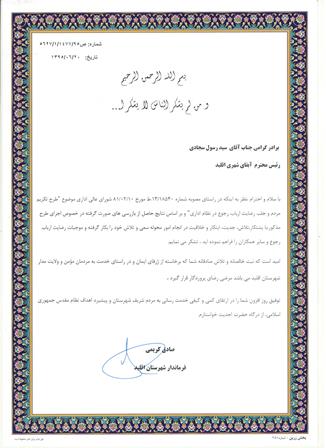 شماره: ۵۶۲۷/۱/۱۴۷۱/۹۵ص
تاریخ: ۱۳۹۵/۰۶/۲۰
بسم الله الرحمن الرحیم
و من لم یشکر الناس لا یشکر ا...
برادر گرامی جناب آقای سید رسول سجادی
رئیس محترم آبفای شهری اقلید
با سلام و احترام نظر به اینکه در راستای مصوبه شماره ۱۳/۱۸۵۴۰ط مورخ ۸۱/۰۲/۱۰ شورای عالی اداری موضوع "طرح تکریم
مردم و جلب رضایت ارباب رجوع در نظام اداری" و بر اساس نتایج حاصل از بازرسی های صورت گرفته در خصوص اجرای طرح
مذکور با پشتکار، تلاش، جدیت، ابتکار و خلاقیت در انجام امور محوله سعی و تلاش خود را بکار گرفته و موجبات رضایت ارباب
رجوع و سایر همکاران را فراهم نموده اید . تشکر می نمایم
امید است که نیت خالصانه و تلاش صادقانه شما که برخاسته از ژرفای ایمان و در راستای خدمت به مردمان مؤمن و ولایت مدار
شهرستان اقلید می باشد مرضی رضای پروردگار قرار گیرد .
توفیق روز افزون شما را در ارتقای کمی و کیفی خدمت رسانی به مردم شریف شهرستان و پیشبرد اهداف نظام مقدس جمهوری
اسلامی، از درگاه حضرت احدیت خواستارم.
صادق کریمی
فرماندار شهرستان اقلید
پخش زرین -